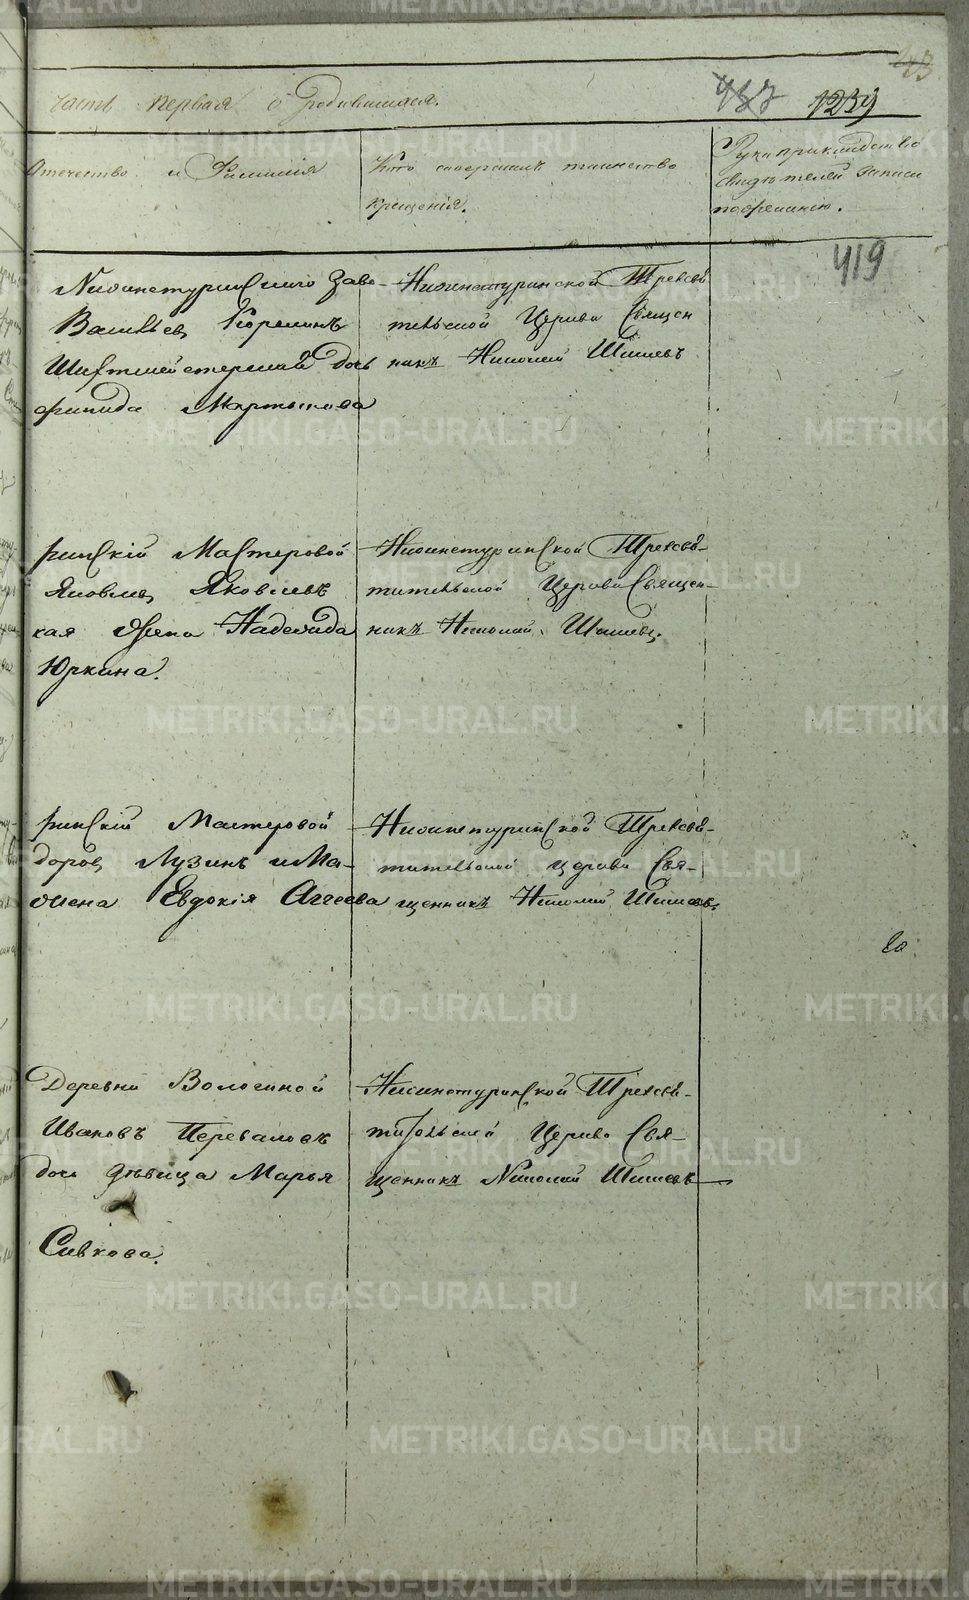 43
часть первая о родившихся.
487 1239
Отечество и Фамилія
Кто совершалъ таинство
крещенія.
Рукоприкладство
свидѣтелей записи
по желанію.
419
Нижнетуринскаго Заво-
Васильевъ Корелинъ
Шихтмейстерская дочь
фипида Мартынова
Нижнетуринской Трехсвѣ
тельской Церкви Священ
никъ Николай Шишевъ
ринскій Мастеровой
Яковлевъ Яковлевъ
кая жена Надежда
Юркина.
Нижнетуринской Трехсвѣ-
тительской Церкви Священ-
никъ Николай Шишевъ.
ринскій Мастеровой
доровъ Лузинъ и Ма-
жена Евдокія Аггеева
Нижнетуринской Трехсвѣ-
тительской церкви Свя-
щенникъ Николай Шишевъ.
Деревни Вологиной
Ивановъ Переваловъ
дочь дѣвица Марья
Сивкова.
Нижнетуринской Трехсвѣ-
тительской Церкви Свя-
щенникъ Николай Шишевъ
METRIKI.GASO-URAL.RU